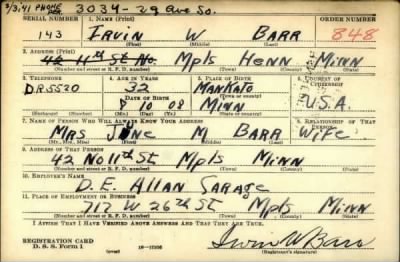 3/3.41 PHONE 3034-29 Ave So.
SERIAL NUMBER 1. NAME (Print) ORDER NUMBER
143 IRVIN W BARR 848
(First) (Middle) (Last)
2. ADDRESS (Print)
42 11th St No. Mpls HENN MINN
(Number and street or R. F. D. number) (Town) (County) (State)
3. TELEPHONE 4. AGE IN YEARS 5. PLACE OF BIRTH 6. COUNTRY OF CITIZENSHIP
DR5520 32 MANKATO
DATE OF BIRTH (Town or county)
10 08 MINN U.S.A.
(Mo.) (Day) (Yr.) (State or country)
7. NAME OF PERSON WHO WILL ALWAYS KNOW YOUR ADDRESS 8. RELATIONSHIP OF THAT PERSON
MRS JUNE M BARR WIFE
(Mr., Mrs., Miss) (First) (Middle) (Last)
9. ADDRESS OF THAT PERSON
42 No 11th St Mpls MINN
(Number and street or R. F. D. number) (Town) (County) (State)
10. EMPLOYER'S NAME
D. E. ALLAN GARAGE
11. PLACE OF EMPLOYMENT OR BUSINESS
717 W 26th St Mpls MINN
(Number and street or R. F. D. number) (Town) (County) (State)
I AFFIRM THAT I HAVE VERIFIED ABOVE ANSWERS AND THAT THEY ARE TRUE.
REGISTRATION CARD
D. S. S. FORM 1 Irvin W Barr